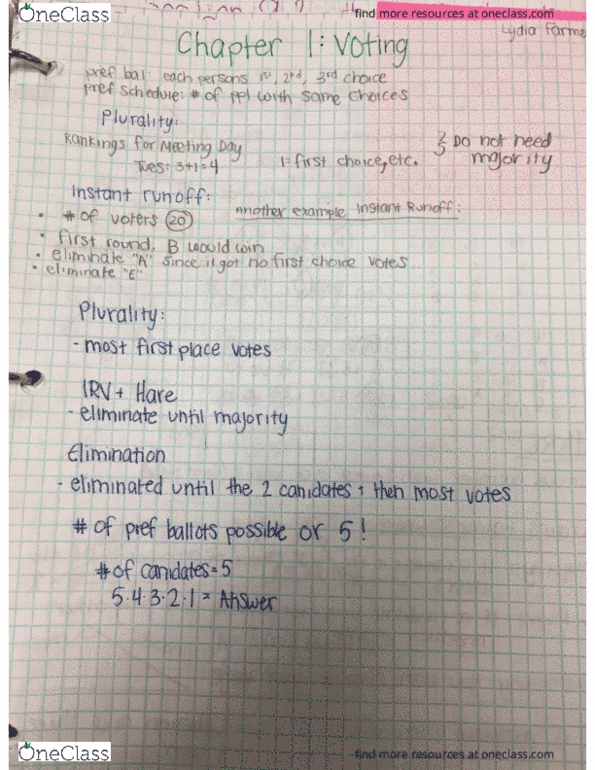 OneClass
find more resources at oneclass.com
Lydia Farme
Chapter 1: Voting
pref bal: each persons 1st, 2nd, 3rd choice
pref schedule: # of ppl with same choices
Plurality:
Rankings for Meeting Day
Tues: 3+1=4
1=first choice, etc.
Do not need
majority
Instant runoff:
Another example Instant Runoff:
• # of voters 20
• first round, B would win
• eliminate "A" since it got no first choice votes
• eliminate "E"
Plurality:
- most first place votes
IRV + Hare
- eliminate until majority
Elimination
- eliminated until the 2 canidates & then most votes
# of pref ballots possible or 5!
# of canidates = 5
5·4·3·2·1 = Answer
OneClass
find more resources at oneclass.com